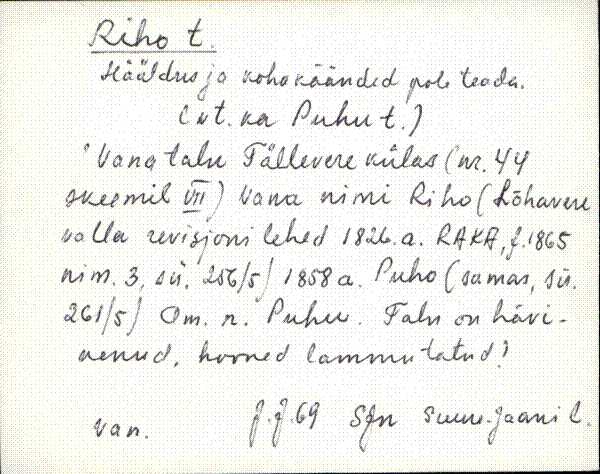 Riho t.
Hääldus ja kohakäänded pole teada.
(vt. ka Puhu t.)
'Vana talu Tällevere külas (nr. 44
skeemil VII) Vana nimi Riho (Lõhavere
valla revisjoni lehed 1826. a. RAKA, f. 1865
nim. 3, sü. 256/5) 1858 a. Puho (samas, sü.
261/5) Om. n. Puhu. Talu on hävi-
nenud, hooned lammutatud!
van. J. J. 69 SJn Suure-Jaani l.